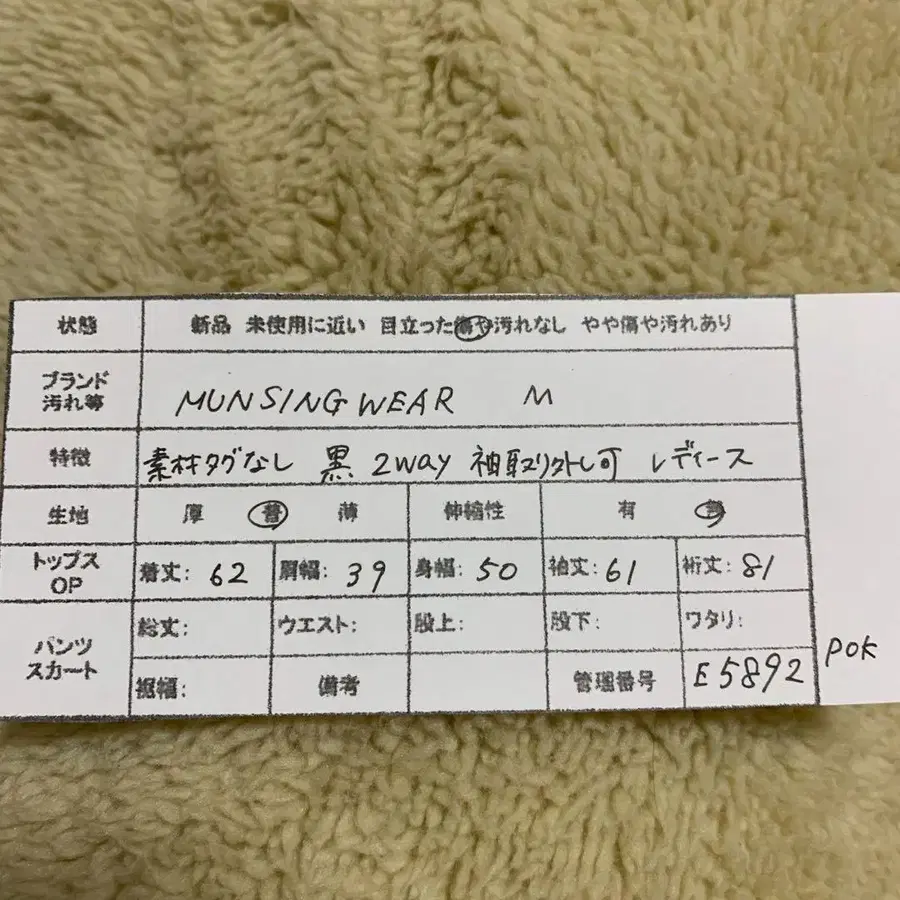 状態 新品 未使用に近い 目立った傷や汚れなし やや傷や汚れあり
ブランド
汚れ等 MUNSINGWEAR M
特徴 素材タグなし 黒 2way 袖取り外し可 レディース
生地 厚 普 薄 伸縮性 有 無
トップス
OP 着丈: 62 肩幅: 39 身幅: 50 袖丈: 61 裄丈: 81
パンツ
スカート 総丈: ウエスト: 股上: 股下: ワタリ:
裾幅: 備考 管理番号 E5892
POK